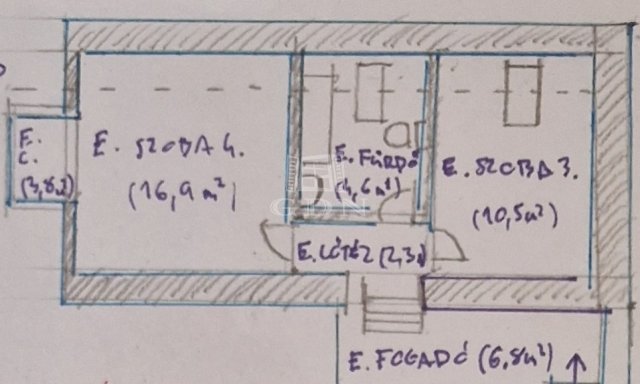 E.
C.
(3,8m²)
E. SZOBA 4.
(16,9 m²)
E. FÜRDŐ
(4,6m²)
E. SZOBA 3.
(10,5m²)
GDN
E. FOGADÓ (6,8m²)